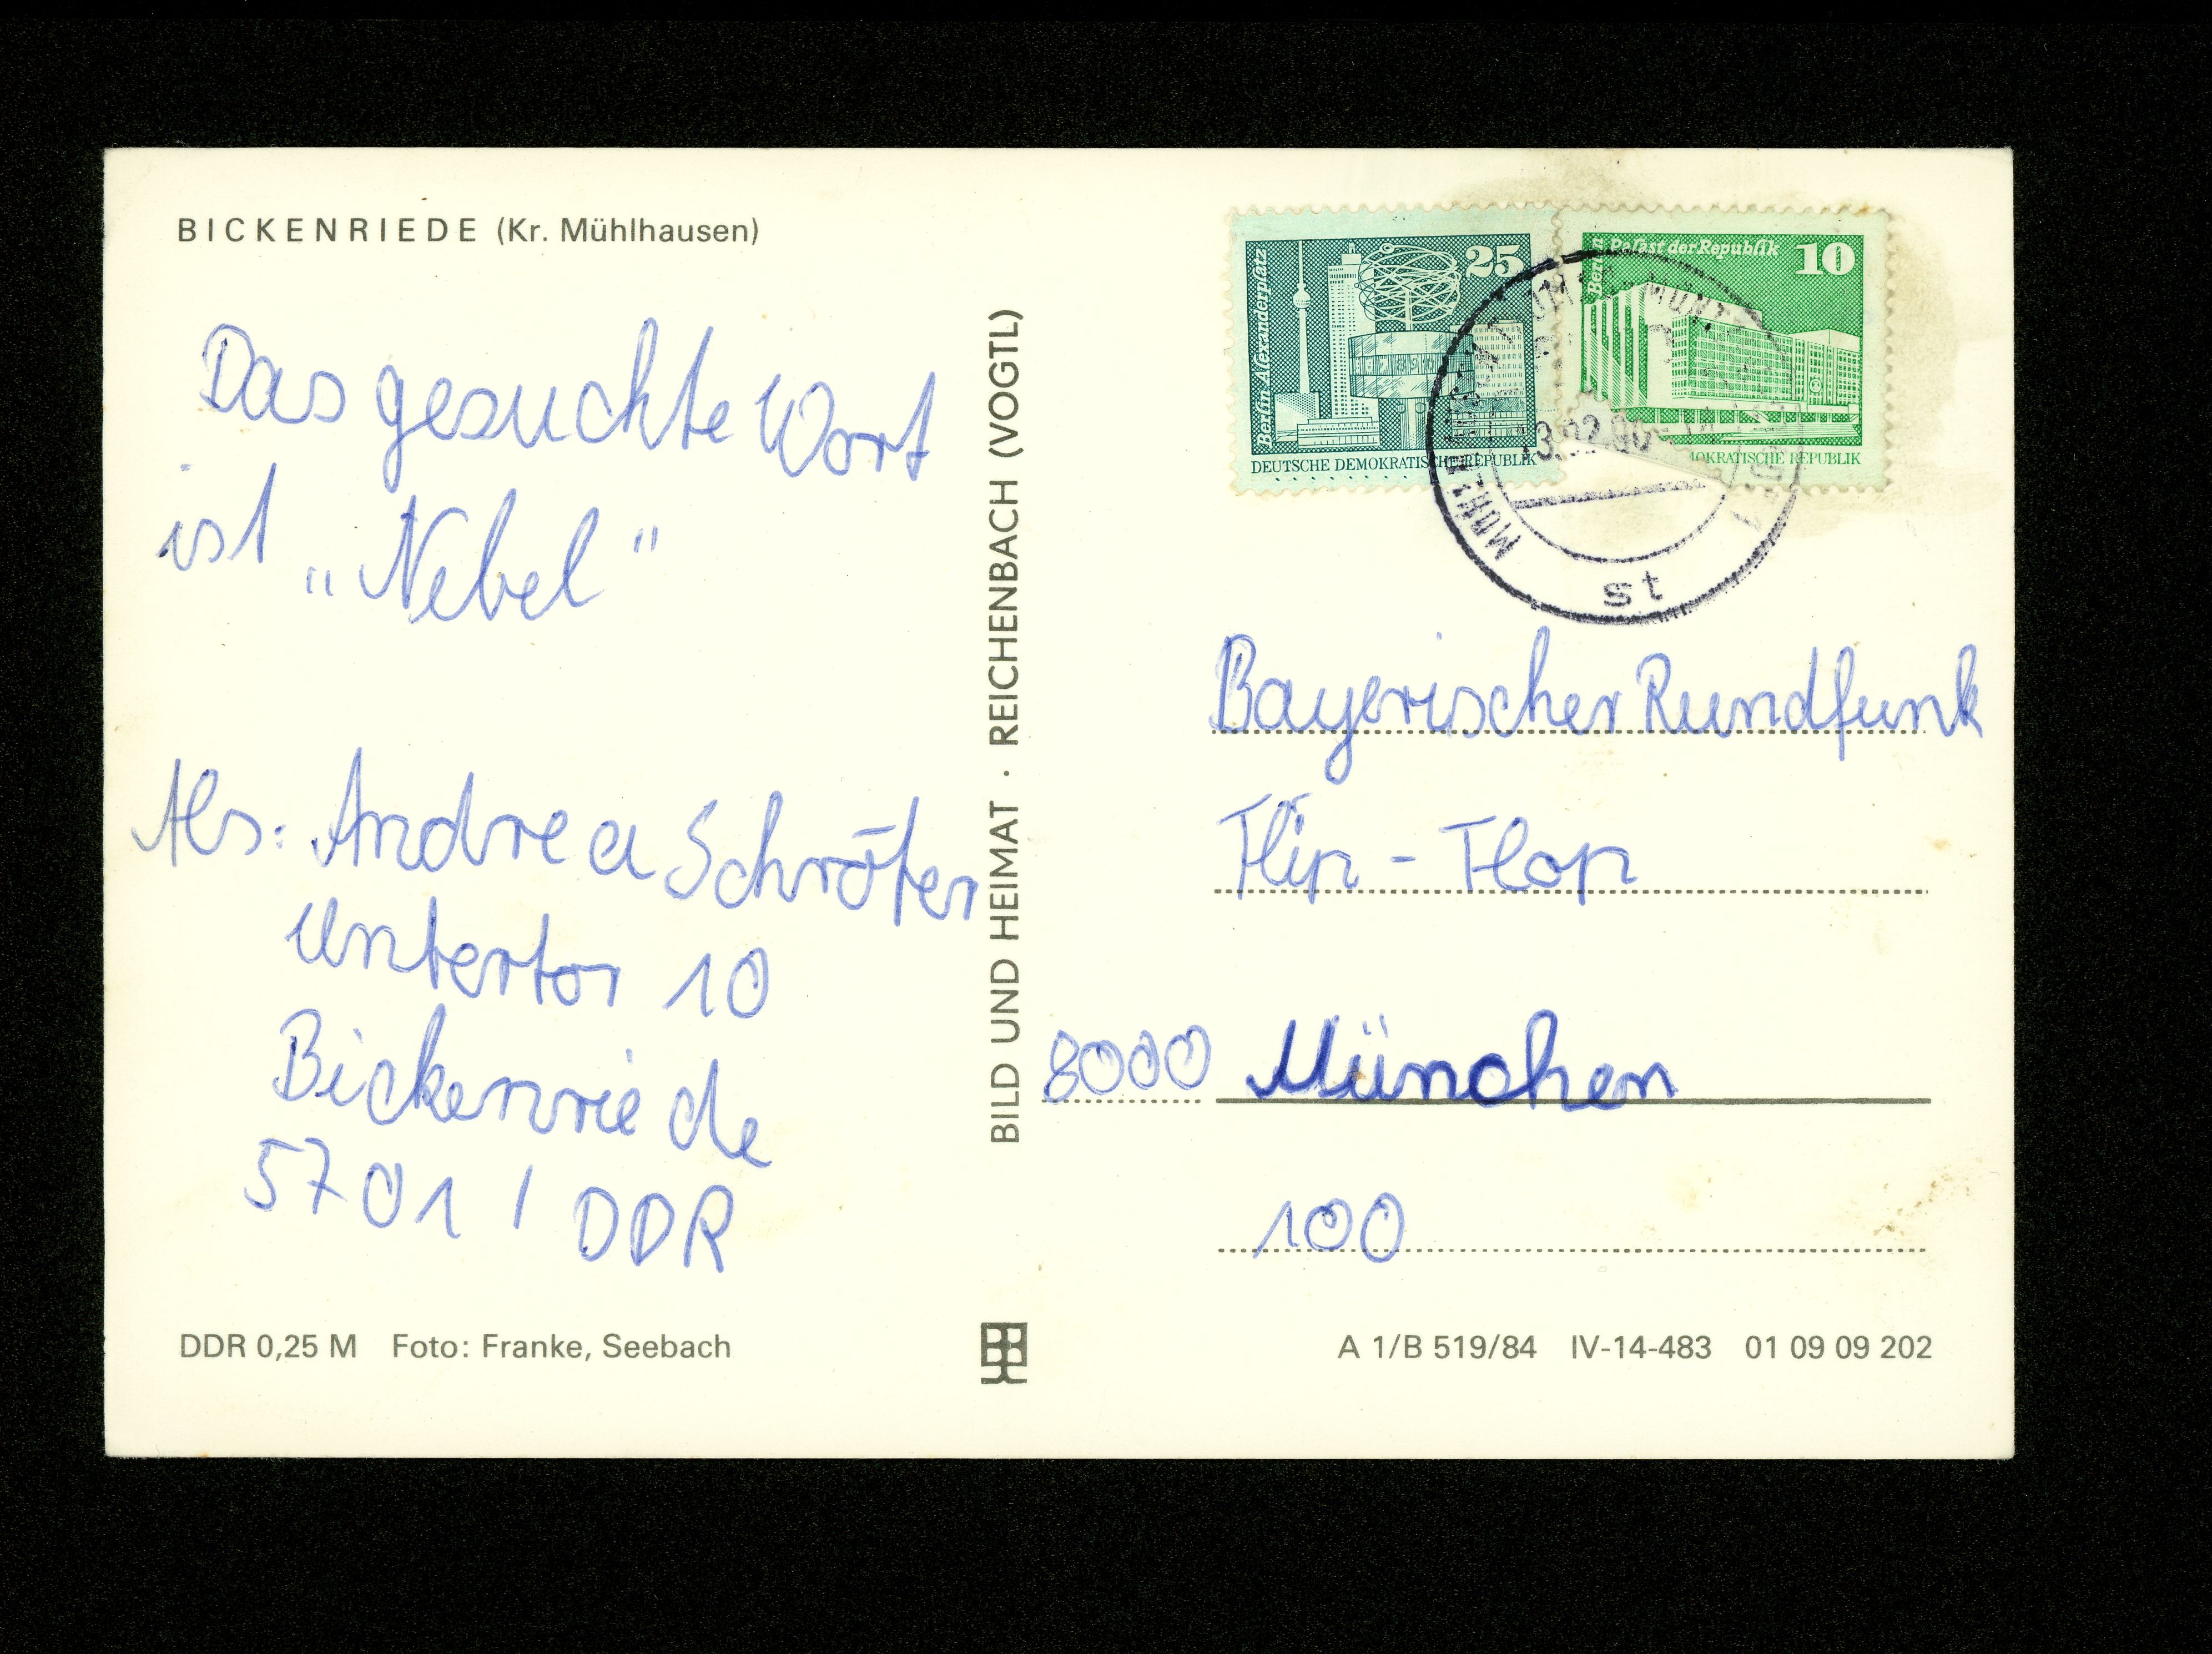 BICKENRIEDE (Kr. Mühlhausen)
Das gesuchte Wort
ist „Nebel"
Abs: Andrea Schröter
Untertor 10
Bickenriede
5701 / DDR
DDR 0,25 M Foto: Franke, Seebach
BILD UND HEIMAT · REICHENBACH (VOGTL)
Berlin Alexanderplatz
25
DEUTSCHE DEMOKRATISCHE REPUBLIK
Palast der Republik
10
OKRATISCHE REPUBLIK
st
Bayerischer Rundfunk
Flip-Flop
8000 München
100
A 1/B 519/84 IV-14-483 01 09 09 202